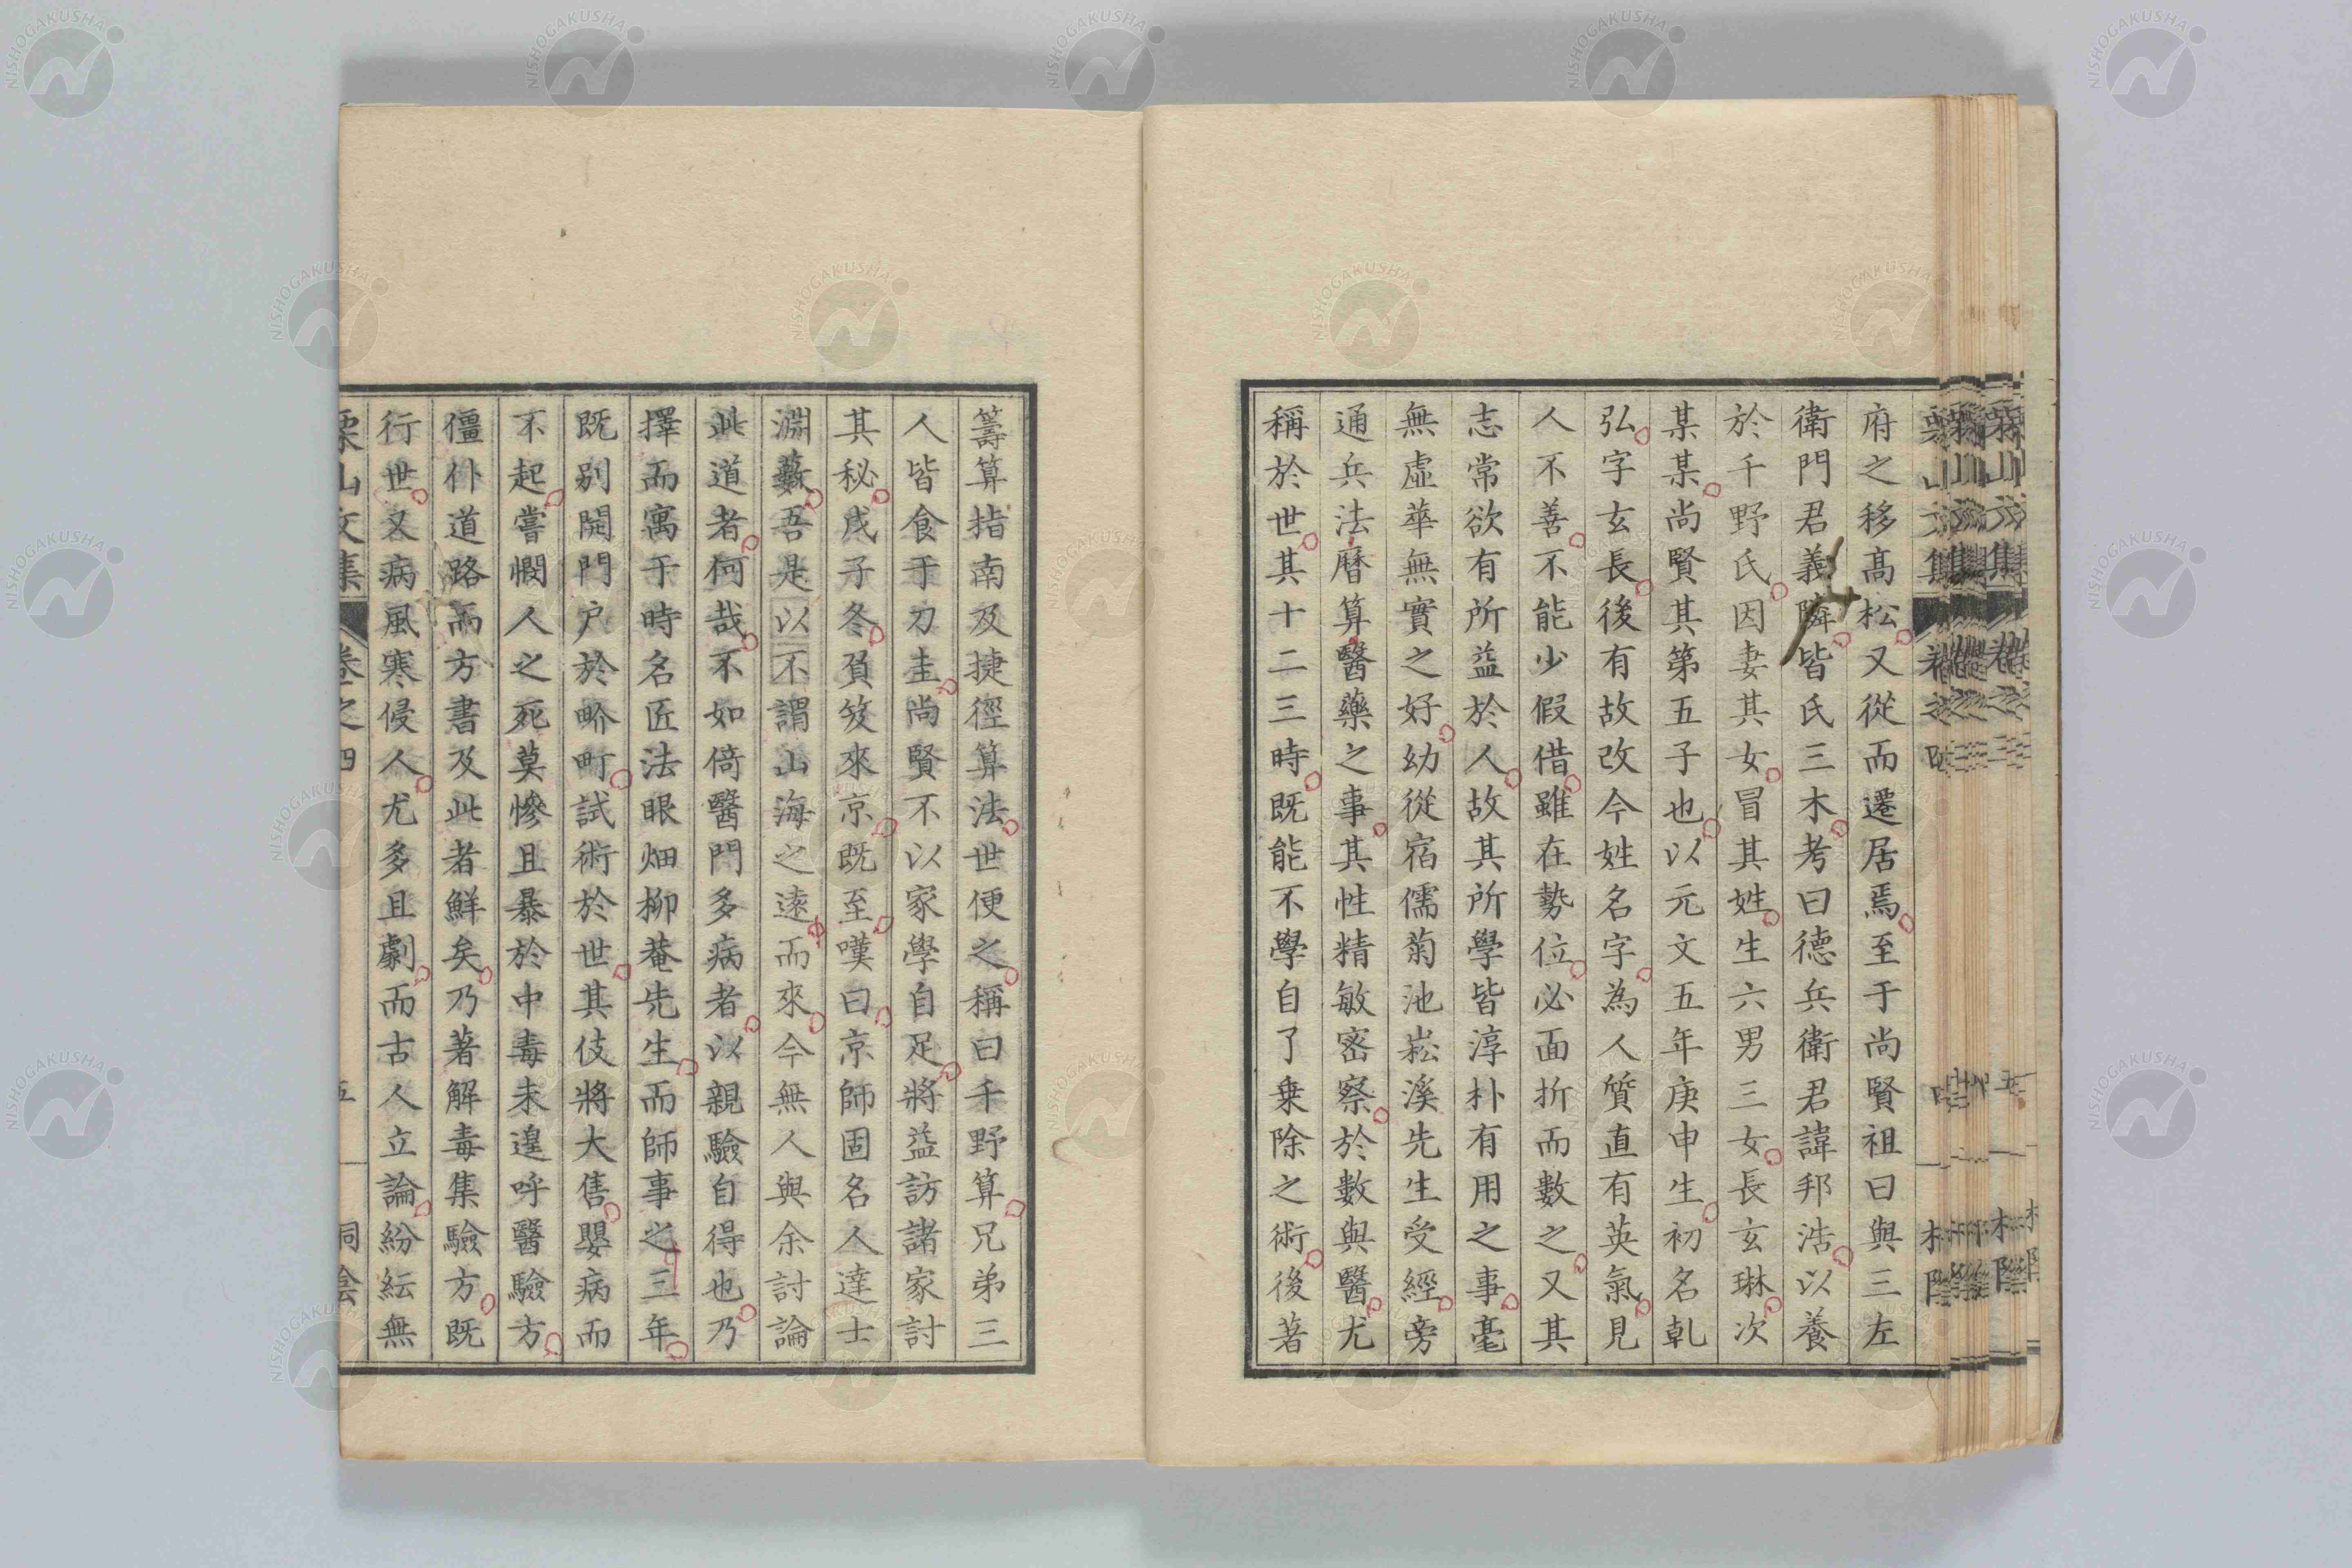 府之移髙松又從而遷居焉至于尚賢祖曰與三左
衛門君義隣皆氏三木考曰德兵衛君諱邦浩以養
於千野氏因妻其女冒其姓生六男三女長玄琳次
某某尚賢其第五子也以元文五年庚申生初名乹
弘字玄長後有故改今姓名字為人質直有英氣見
人不善不能少假借雖在勢位必面折而數之又其
志常欲有所益於人故其所學皆淳朴有用之事毫
無虛華無實之好幼從宿儒菊池崧溪先生受經旁
通兵法曆算醫藥之事其性精敏密察於數與醫尤
稱於世其十二三時既能不學自了乗除之術後著
籌算指南及捷徑算法世便之稱曰千野算兄弟三
人皆食于刀圭尚賢不以家學自足將益訪諸家討
其秘戊子冬負笈來京既至嘆曰京師固名人達士
淵藪吾是以不謂山海之遠而來今無人與余討論
此道者何哉不如倚醫門多病者以親驗自得也乃
擇而寓于時名匠法眼畑柳菴先生而師事之三年
既别開門戶於畍町試術於世其伎將大售嬰病而
不起嘗憫人之死莫慘且暴於中毒未遑呼醫驗方
僵仆道路而方書及此者鮮矣乃著解毒集驗方既
行世又病風寒侵人尤多且劇而古人立論紛紜無
栗山文集 卷之四 五
NISHOGAKUSHA